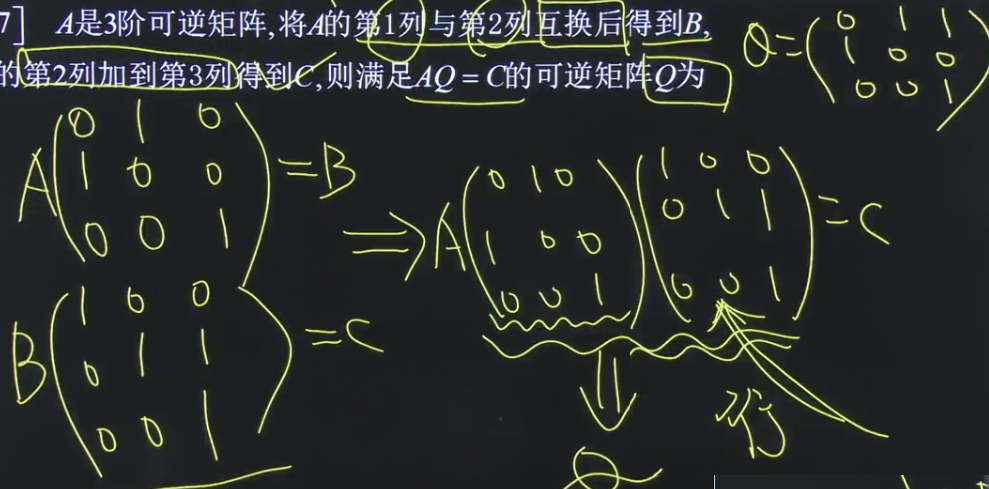 7] A是3阶可逆矩阵,将A的第1列与第2列互换后得到B,
的第2列加到第3列得到C,则满足AQ = C的可逆矩阵Q为
Q=(0 1 1
1 0 0
0 0 1)
A(0 1 0
1 0 0
0 0 1)=B
B(1 0 0
0 1 1
0 0 1)=C
⇒A(0 1 0
1 0 0
0 0 1)(1 0 0
0 1 1
0 0 1)=C
⇓
Q